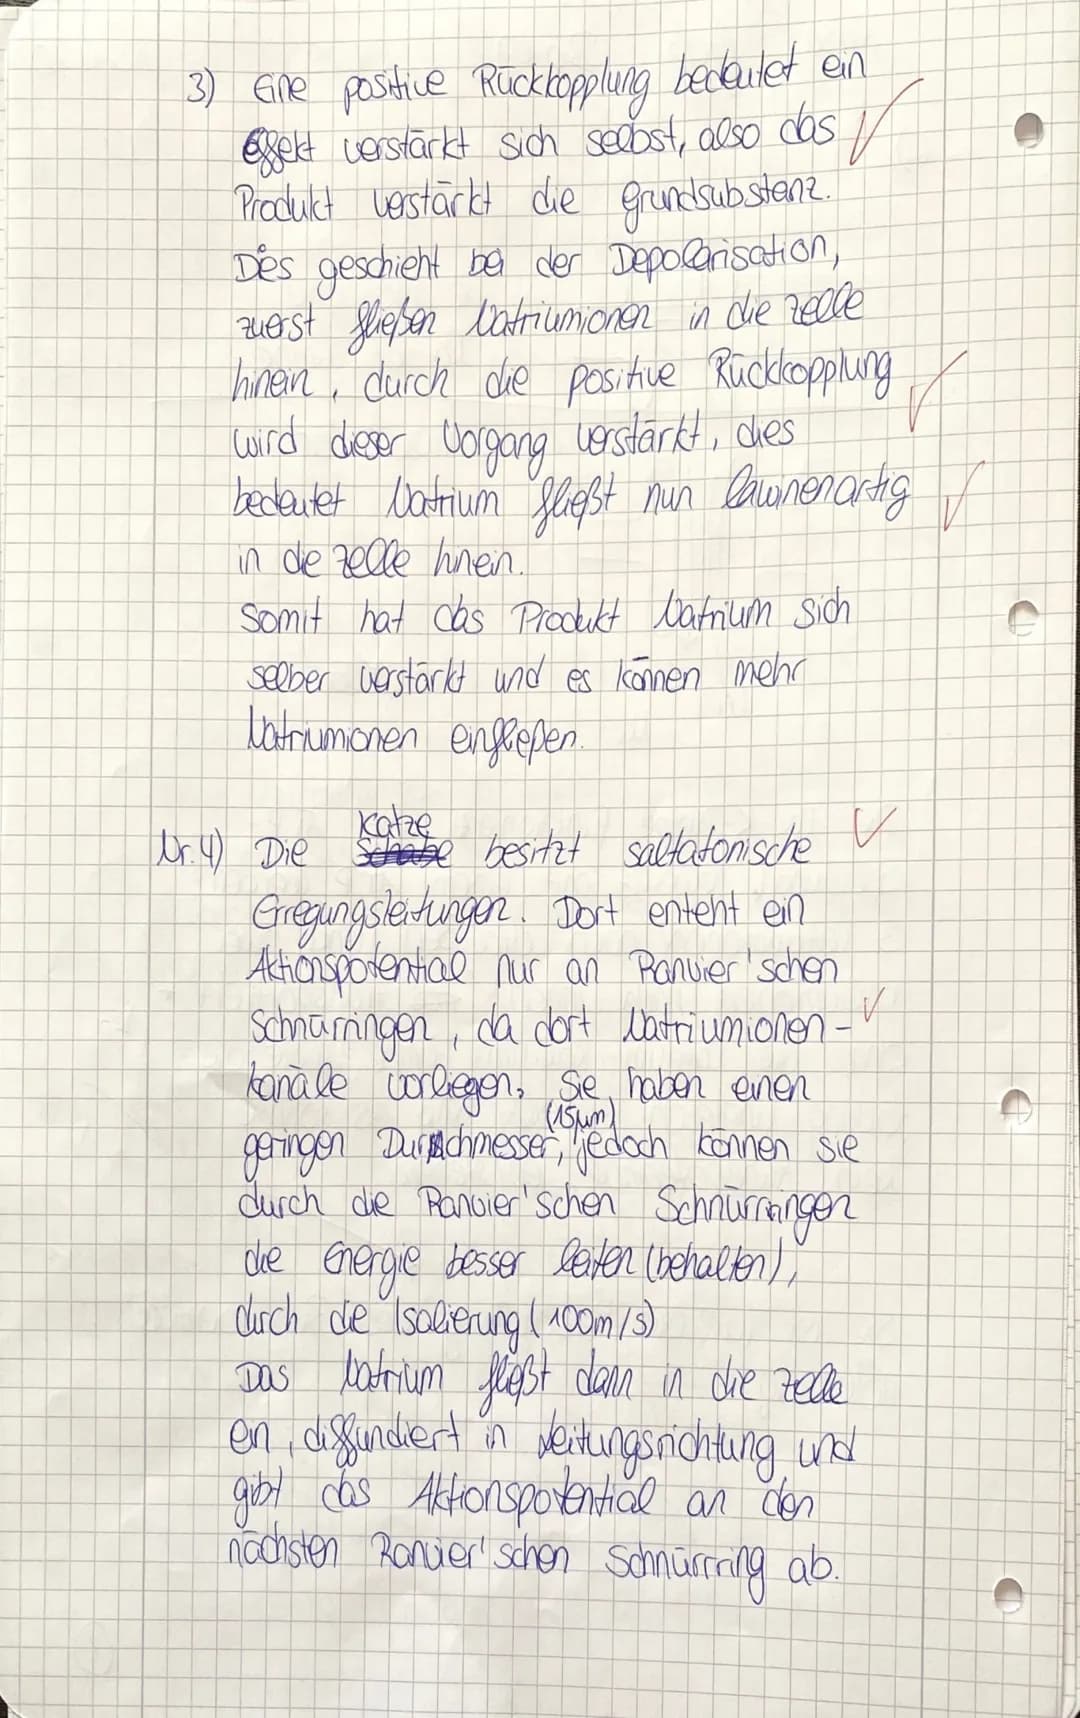 3) Eine positive Rückkopplung bedeutet ein
Effekt verstärkt sich selbst, also das
Produkt verstärkt die Grundsubstanz.
Dies geschieht bei der Depolarisation,
zuerst fließen Natriumionen in die Zelle
hinein, durch die positive Rückkopplung
wird dieser Vorgang verstärkt, dies
bedeutet Natrium fließt nun lawinenartig
in die Zelle hinein.
Somit hat das Produkt Natrium sich
selber verstärkt und es können mehr
Natriumionen einfließen.
Nr. 4) Die Katze besitzt saltatorische
Erregungsleitungen. Dort enteht ein
Aktionspotential nur an Ranvier'schen
Schnürringen, da dort Natriumionen-
kanäle vorliegen. Sie haben einen
geringen Durchmesser (15µm), jedoch können sie
durch die Ranvier'schen Schnürringen
die Energie besser leiten (behalten),
durch die Isolierung (100m/s)
Das Natrium fließt dann in die Zelle
ein, diffundiert in Leitungsrichtung und
gibt das Aktionspotential an den
nächsten Ranvier'schen Schnürrring ab.